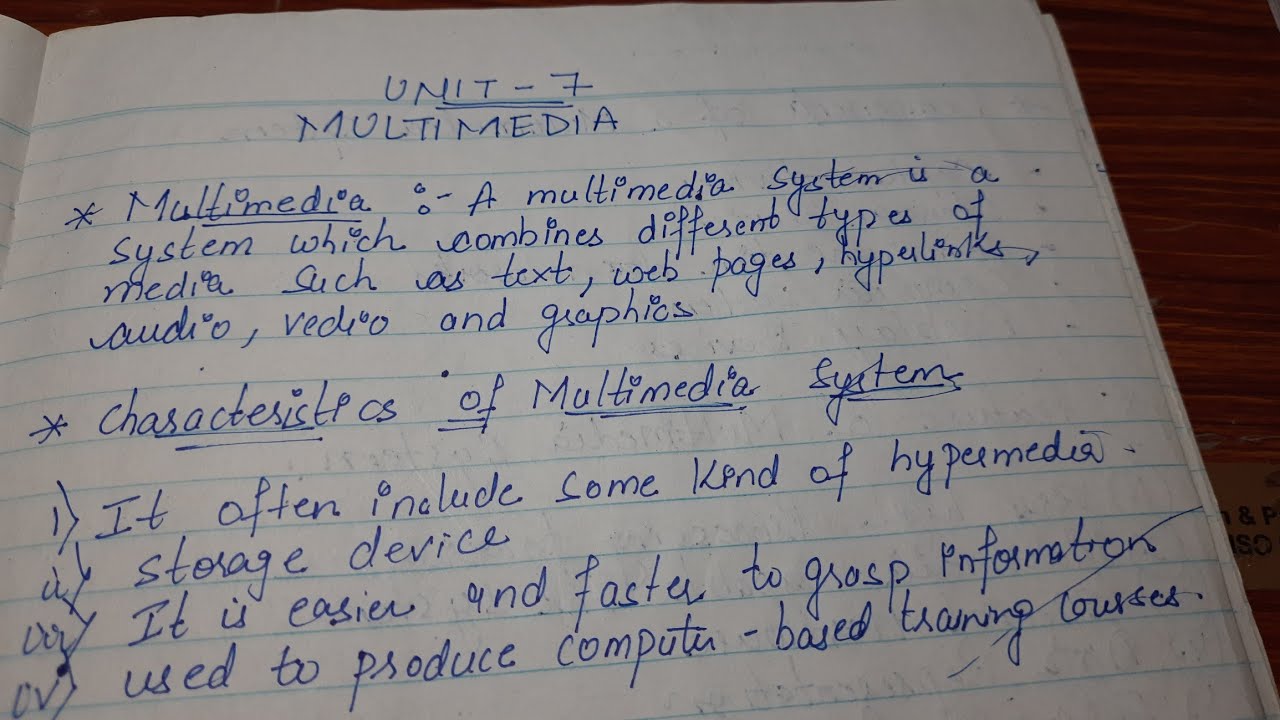 UNIT - 7
MULTIMEDIA
* Multimedia :- A multimedia system is a
system which combines different types of
media such as text, web pages, hyperlinks,
audio, vedio and graphics
* Characteristics of Multimedia System
i) It often include some kind of hypermedia.
ii) storage device
iii) It is easier and faster to grasp information
iv) used to produce computer-based training courses.
& P
ISO